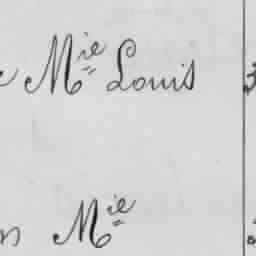 Mie Louis
Mie